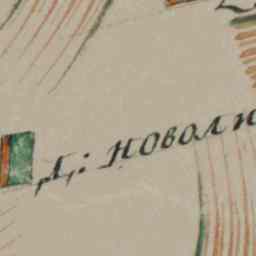 Д: НОВОЛ